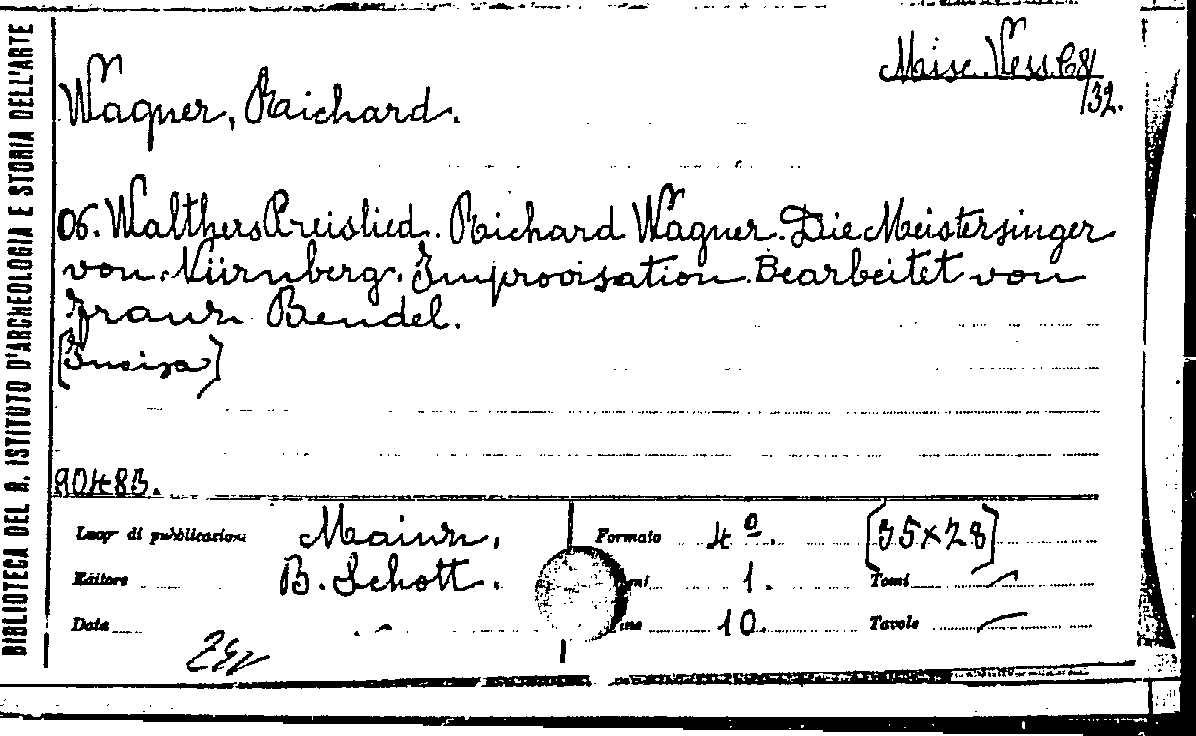 BIBLIOTECA DEL R. ISTITUTO D'ARCHEOLOGIA E STORIA DELL'ARTE
Misc. Vess. C8/32.
Wagner, Richard.
06. Walthers Preislied. Richard Wagner. Die Meistersinger
von Nürnberg. Improvisation. Bearbeitet von
Franz Bendel.
[Incisa]
90483.
Luogo di pubblicazione Mainz.
Formato 4º. [35x28]
Editore B. Schott.
1. Tomi —
Data —
10. Tavole —